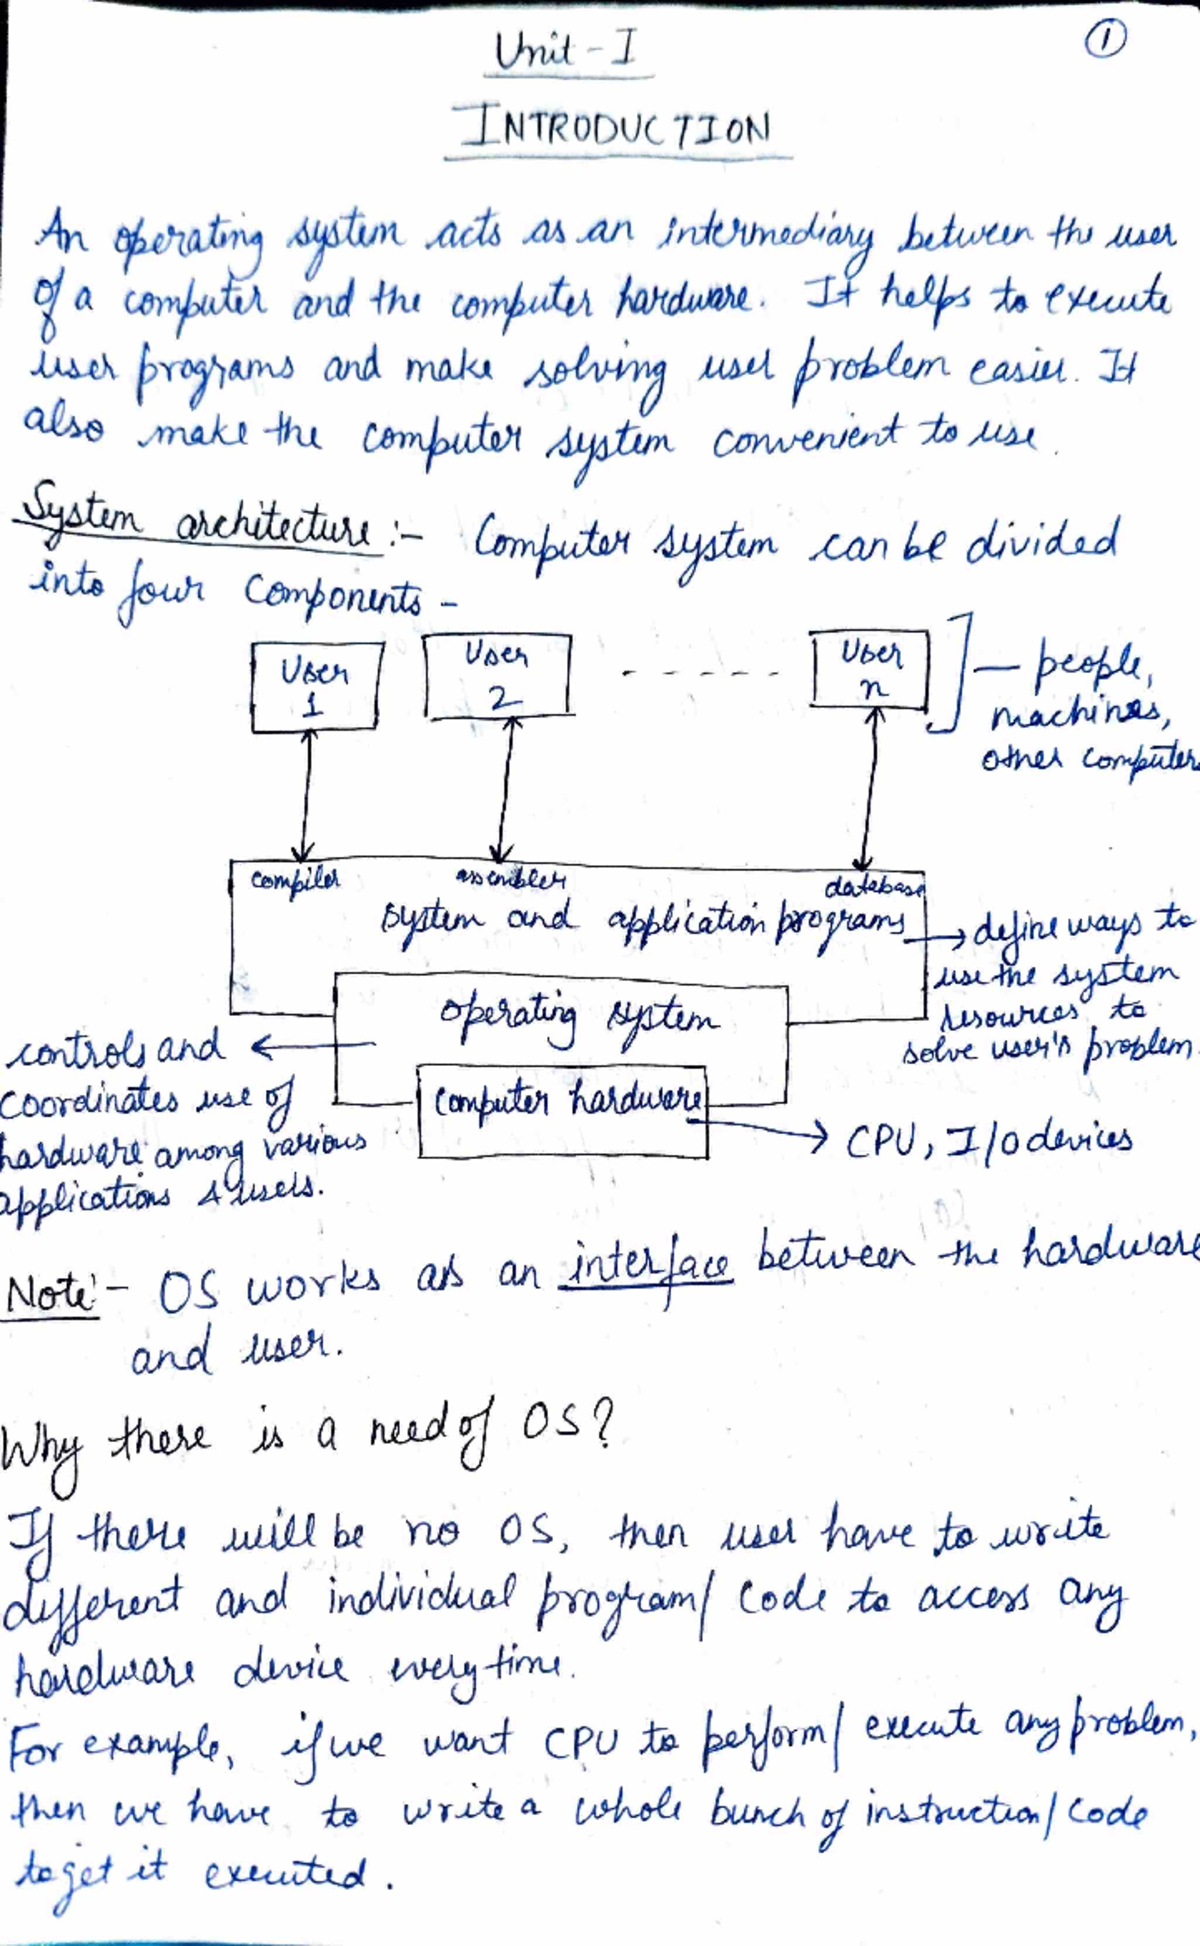 1
Unit - I
INTRODUCTION
An operating system acts as an intermediary between the user
of a computer and the computer hardware. It helps to execute
user programs and make solving user problem easier. It
also make the computer system convenient to use.
System architecture :- Computer system can be divided
into four components -
User
1
User
2
- - - - - -
User
n
— people,
machines,
other computer
compiler
assembler
database
system and application programs
define ways to
use the system
resources to
solve user's problem.
operating system
controls and
coordinates use of
hardware among various
applications & users.
computer hardware
CPU, I/O devices
Note:- OS works as an interface between the hardware
and user.
Why there is a need of OS?
If there will be no OS, then user have to write
different and individual program/ code to access any
hardware device everytime.
For example, if we want CPU to perform/ execute any problem,
then we have to write a whole bunch of instruction/ code
to get it executed.